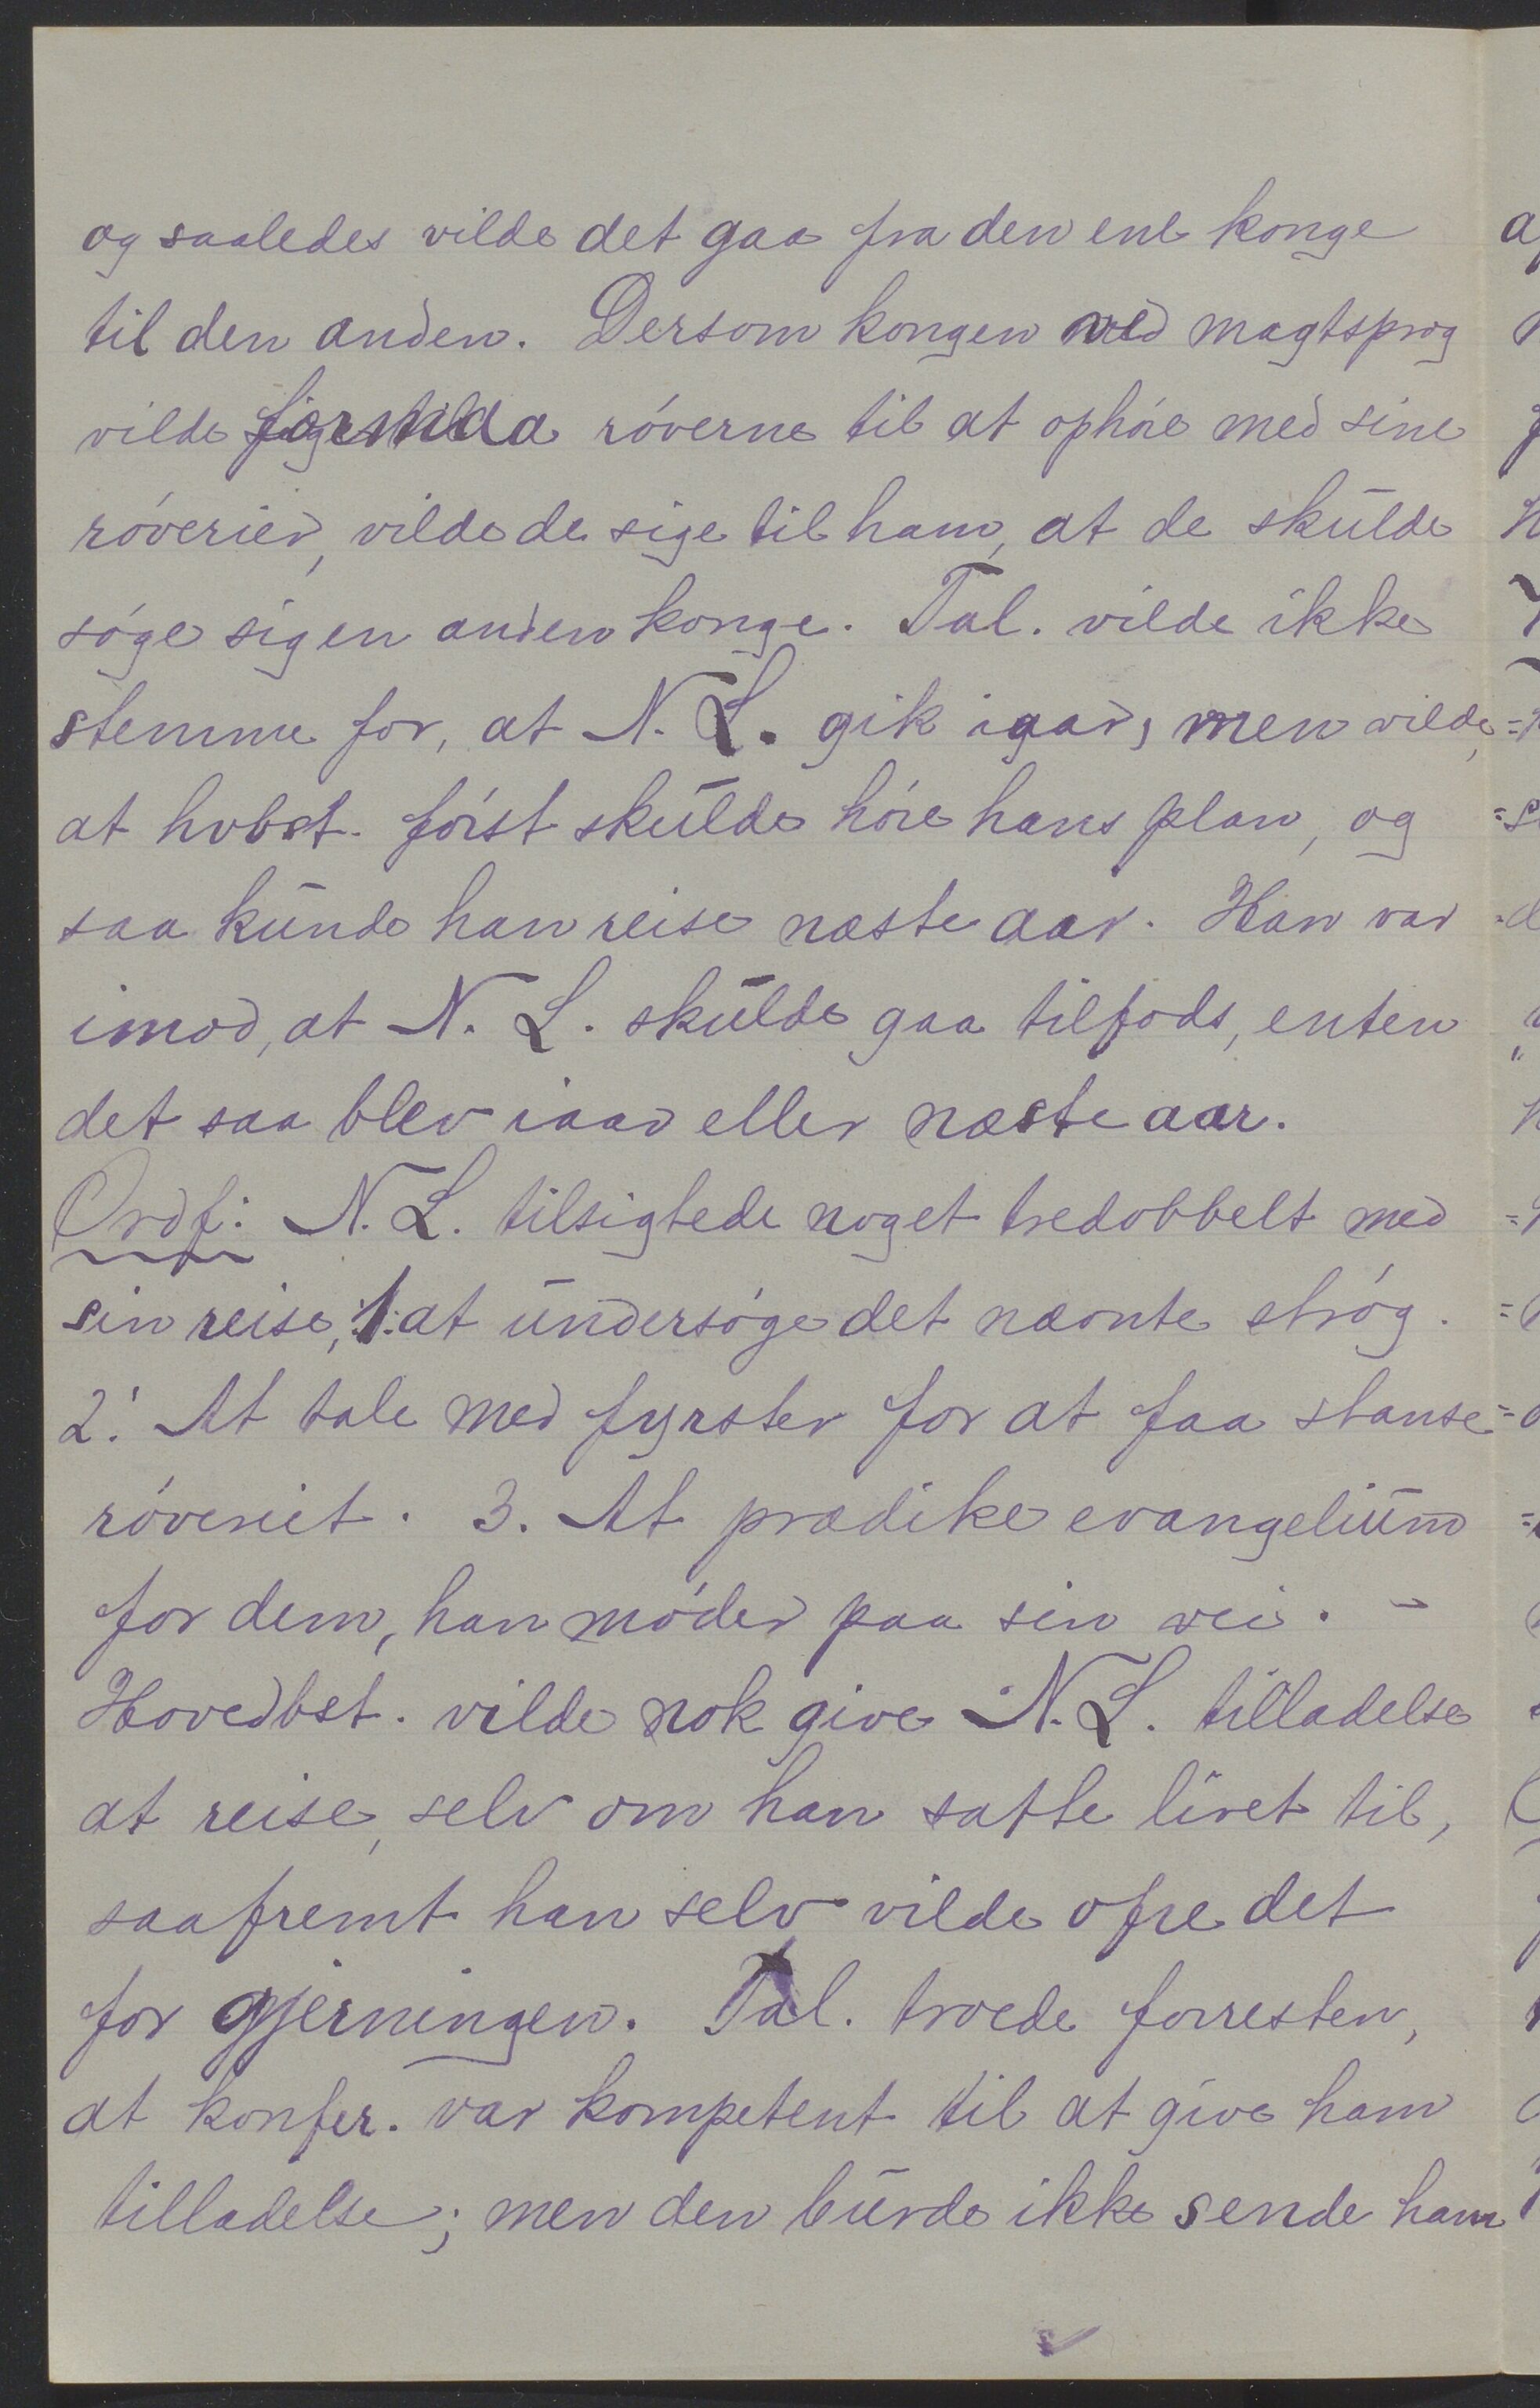 og saaledes vilde det gaa fra den ene konge
til den anden. Dersom kongen ved magtsprog
vilde røverne til at ophøre med sine
røverier, vilde de sige til ham, at de skulde
søge sig en anden konge. Tal. vilde ikke
stemme for, at N. L. gik iaar, men vilde,
at hvbst. først skulde høre hans plan, og
saa kunde han reise næste aar. Han var
imod, at N. L. skulde gaa tilfods, enten
det saa blev iaar eller næste aar.
Ordf: N. L. tilsigtede noget tredobbelt med
sin reise, 1. at undersøge det nævnte strøg.
2. At tale med fyrster for at faa stanse
røveriet. 3. At prædike evangelium
for dem, han møder paa sin vei. -
Hovedbst. vilde nok give N. L. tilladelse
at reise, selv om han satte livet til,
saafremt han selv vilde ofre det
for gjerningen. Tal. troede forresten,
at konfer. var kompetent til at give ham
tilladelse; men den burde ikke sende ham